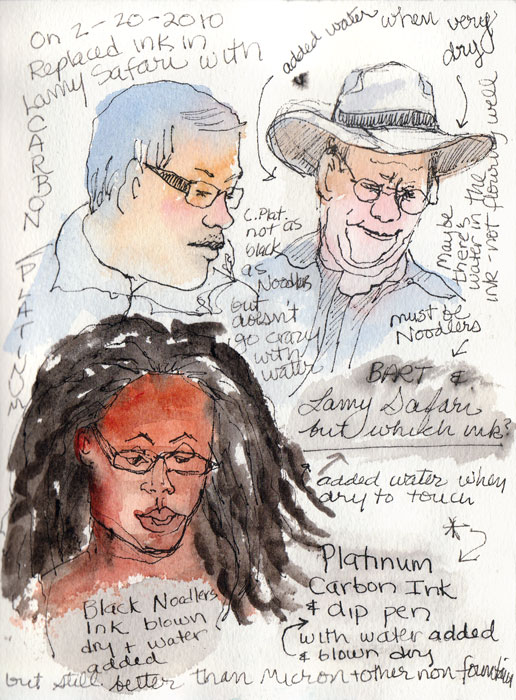 On 2-20-2010
Replaced ink in
Lamy Safari with
CARBON PLATINUM
added water when very
dry
C. Plat.
not as
black
as
Noodlers
but
doesn't
go crazy
with
water
Maybe
there's
water in the
ink not flowing well
must be
Noodlers
BART &
Lamy Safari
but which ink?
added water when
dry to touch
*
Platinum
Carbon Ink
& dip pen
with water added
& blown dry
Black Noodlers
Ink blown
dry + water
added
but still better than Micron + other non fountain